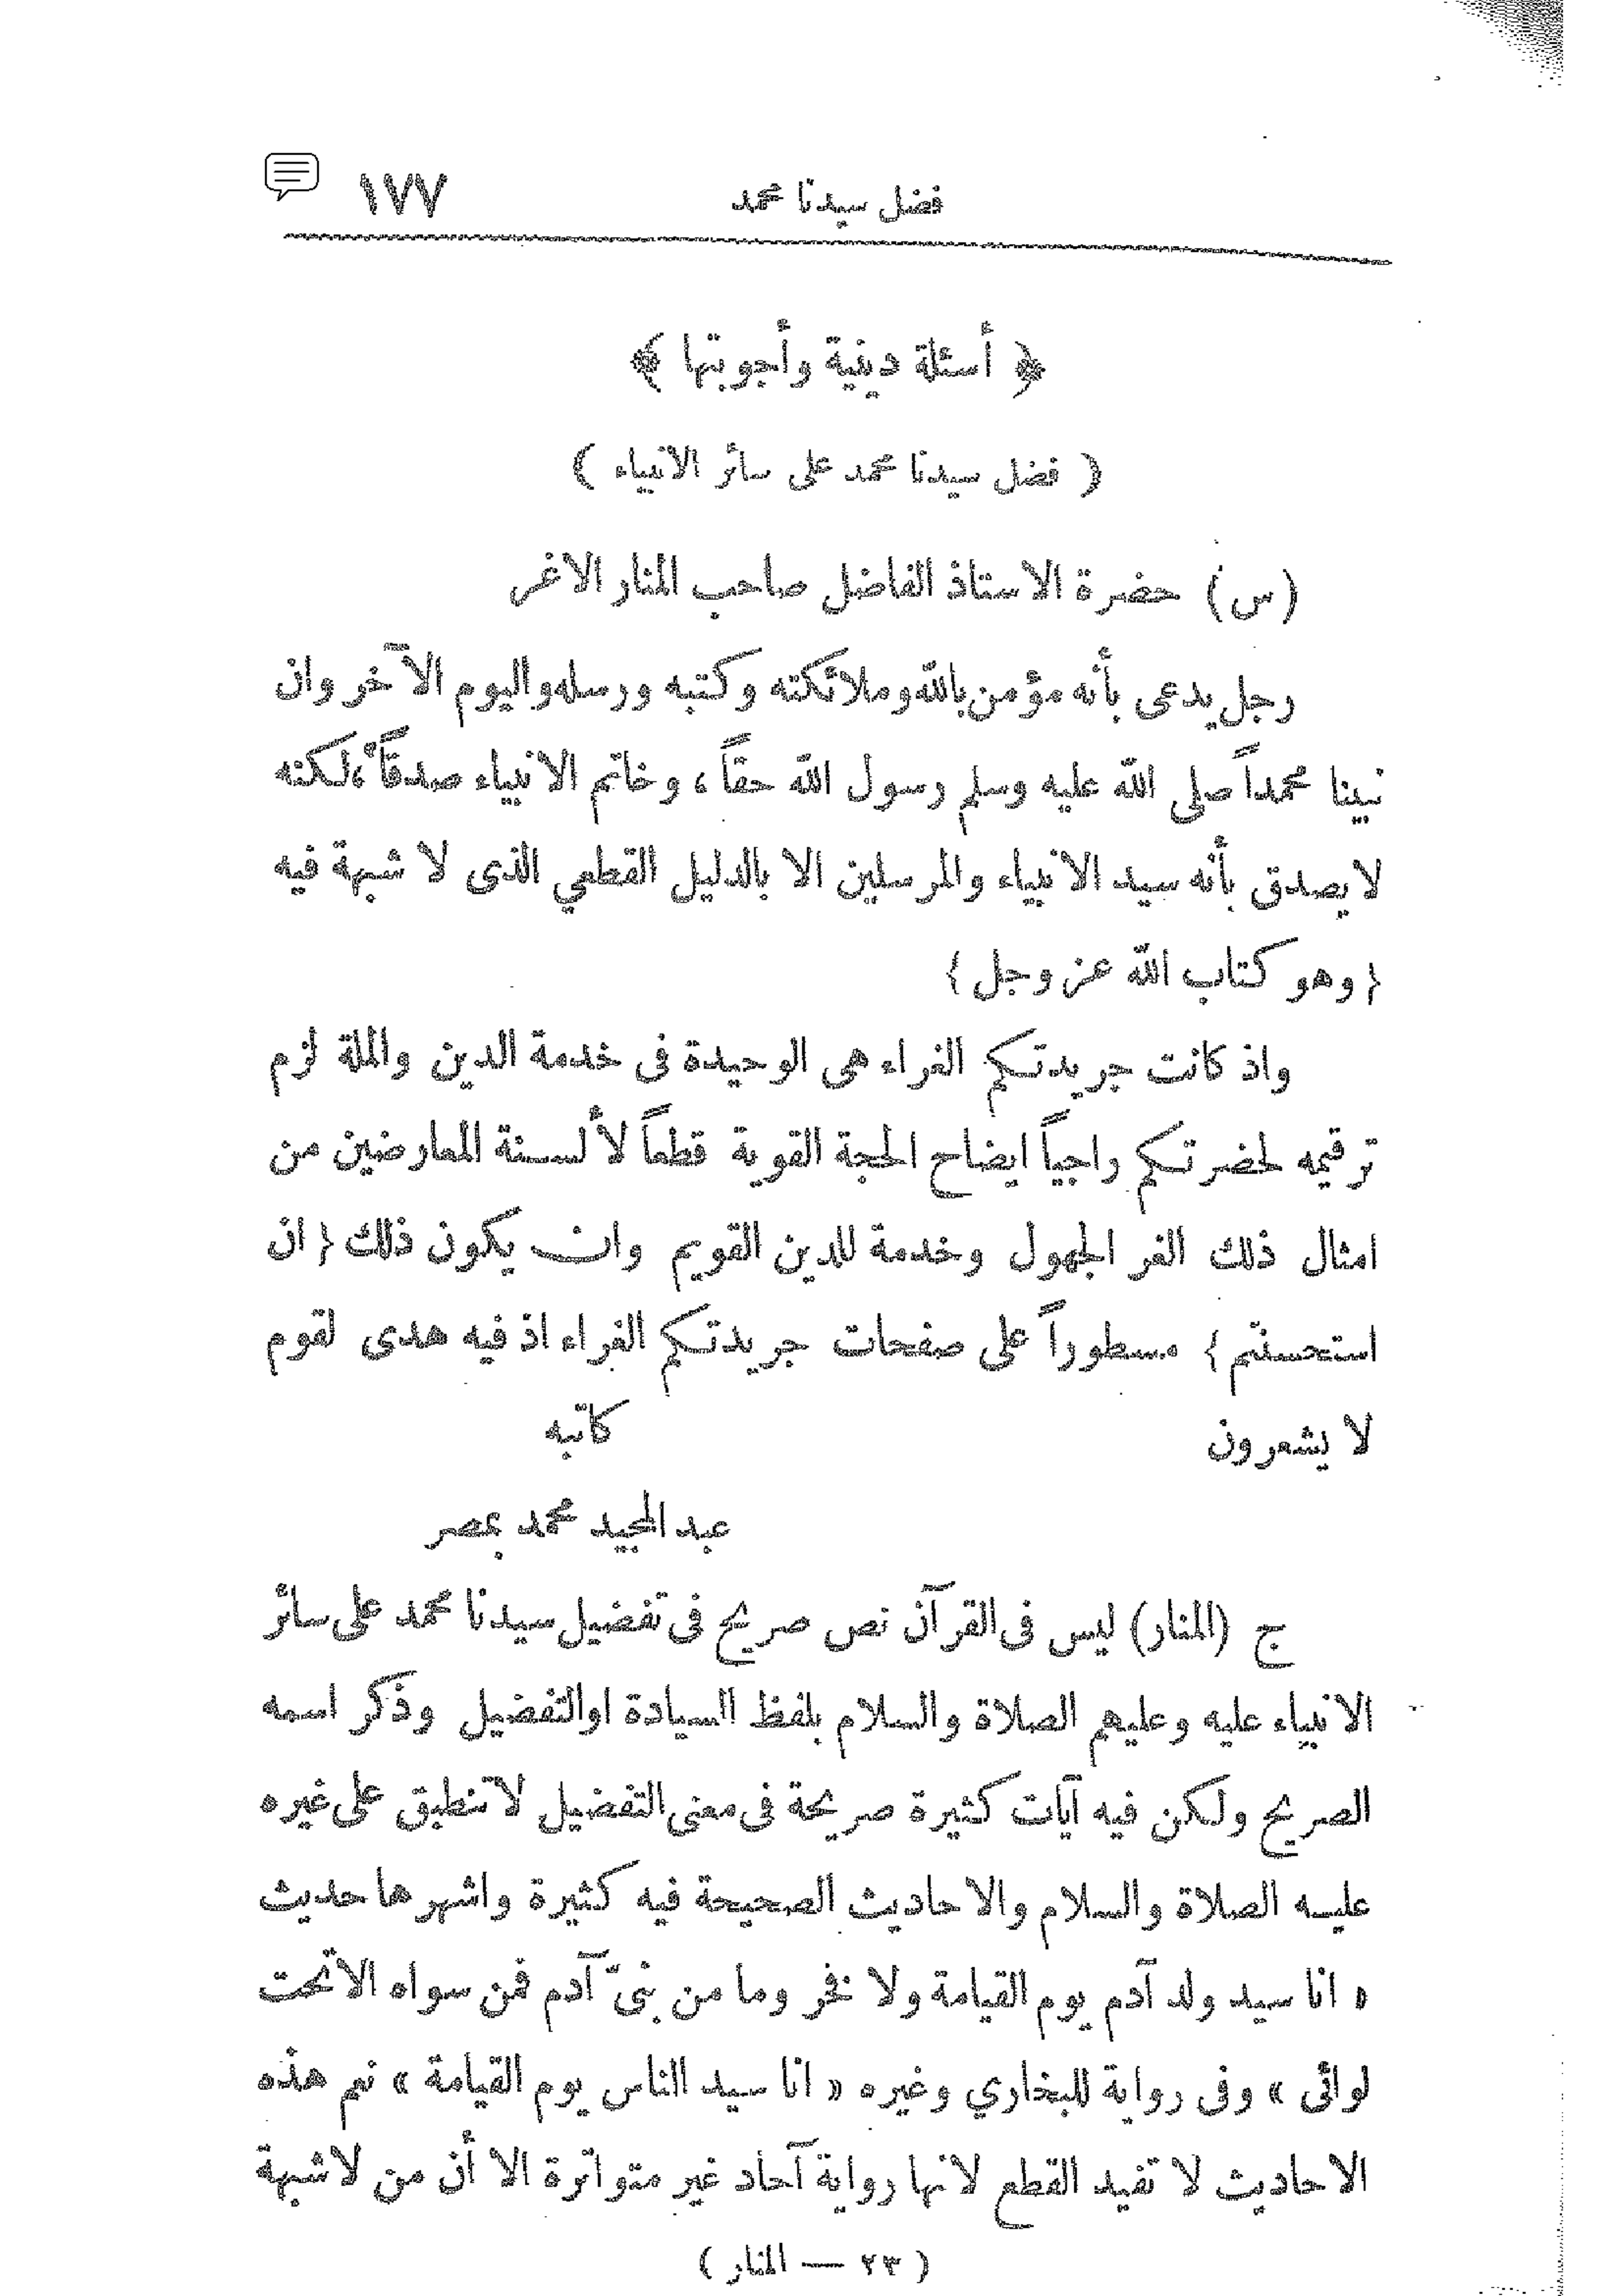 فضل سيدنا محمد ١٧٧
﴿ أسئلة دينية وأجوبتها ﴾
( فضل سيدنا محمد على سائر الانبياء )
(س) حضرة الاستاذ الفاضل صاحب المنار الاغر
رجل يدعى بأنه مؤمن بالله وملائكته وكتبه ورسله واليوم الآخر وان
نبينا محمداً صلى الله عليه وسلم رسول الله حقاً ، وخاتم الانبياء صدقاً ، لكنه
لا يصدق بأنه سيد الانبياء والمرسلين الا بالدليل القطعي الذى لا شبهة فيه
{ وهو كتاب الله عز وجل }
واذ كانت جريدتكم الغراء هى الوحيدة فى خدمة الدين والملة لزم
ترقيمه لحضرتكم راجياً ايضاح الحجة القوية قطعاً لألسنة المعارضين من
امثال ذلك الغر الجهول وخدمة للدين القويم وان يكون ذلك { ان
استحسنتم } مسطوراً على صفحات جريدتكم الغراء اذ فيه هدى لقوم
لا يشعرون كاتبه
عبد المجيد محمد بمصر
ج (المنار) ليس فى القرآن نص صريح فى تفضيل سيدنا محمد على سائر
الانبياء عليه وعليهم الصلاة والسلام بلفظ السيادة او التفضيل وذكر اسمه
الصريح ولكن فيه آيات كثيرة صريحة فى معنى التفضيل لا تنطبق على غيره
عليه الصلاة والسلام والاحاديث الصحيحة فيه كثيرة واشهرها حديث
« انا سيد ولد آدم يوم القيامة ولا فخر وما من بنىّ آدم فمن سواه الا تحت
لوائى » وفى رواية للبخاري وغيره « انا سيد الناس يوم القيامة » نعم هذه
الاحاديث لا تفيد القطع لانها رواية آحاد غير متواترة الا أن من لا شبهة
( ٢٣ — المنار )